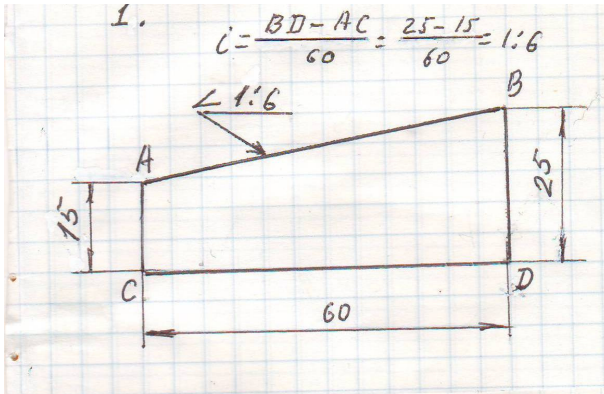 1.
i = BD - AC / 60 = 25 - 15 / 60 = 1:6
∠ 1:6
B
A
15
25
C
D
60